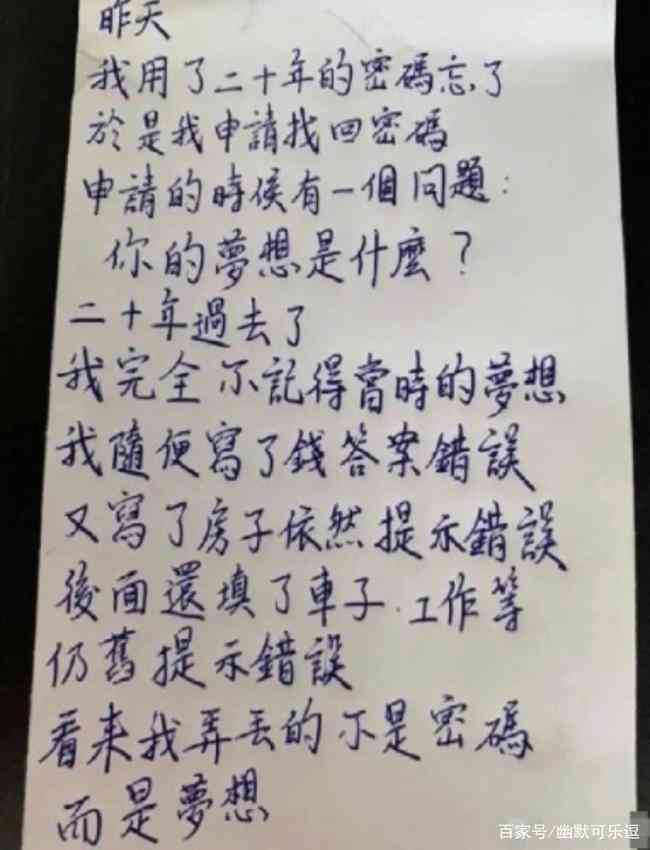 昨天
我用了二十年的密碼忘了
於是我申請找回密碼
申請的時候有一個問題：
你的夢想是什麼？
二十年過去了
我完全不記得當時的夢想
我隨便寫了錢答案錯誤
又寫了房子依然提示錯誤
後面還填了車子.工作等
仍舊提示錯誤
看来我弄丢的不是密碼
而是夢想
百家号/幽默可乐逗